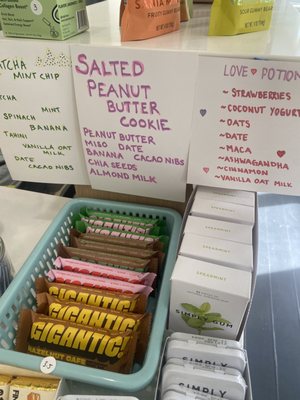 MATCHA
MINT CHIP
MINT
SPINACH
BANANA
TAHINI
VANILLA OAT
MILK
DATE
CACAO NIBS
SALTED
PEANUT
BUTTER
COOKIE
PEANUT BUTTER
MISO DATE
BANANA CACAO NIBS
CHIA SEEDS
ALMOND MILK
LOVE POTION
~ STRAWBERRIES
~ COCONUT YOGURT
~ OATS
~ DATE
~ MACA
~ ASHWAGANDHA
~ CINNAMON
~ VANILLA OAT MILK
FRUITY GUMMY
SOUR GUMMY
SPEARMINT
SPEARMINT
SPEARMINT
SPEARMINT
SIMPLY
GUM
GIGANTIC!
GIGANTIC!
GIGANTIC!
HAZELNUT CAFE
3.5
SIMPLY
SIMPLY
SIMPLY